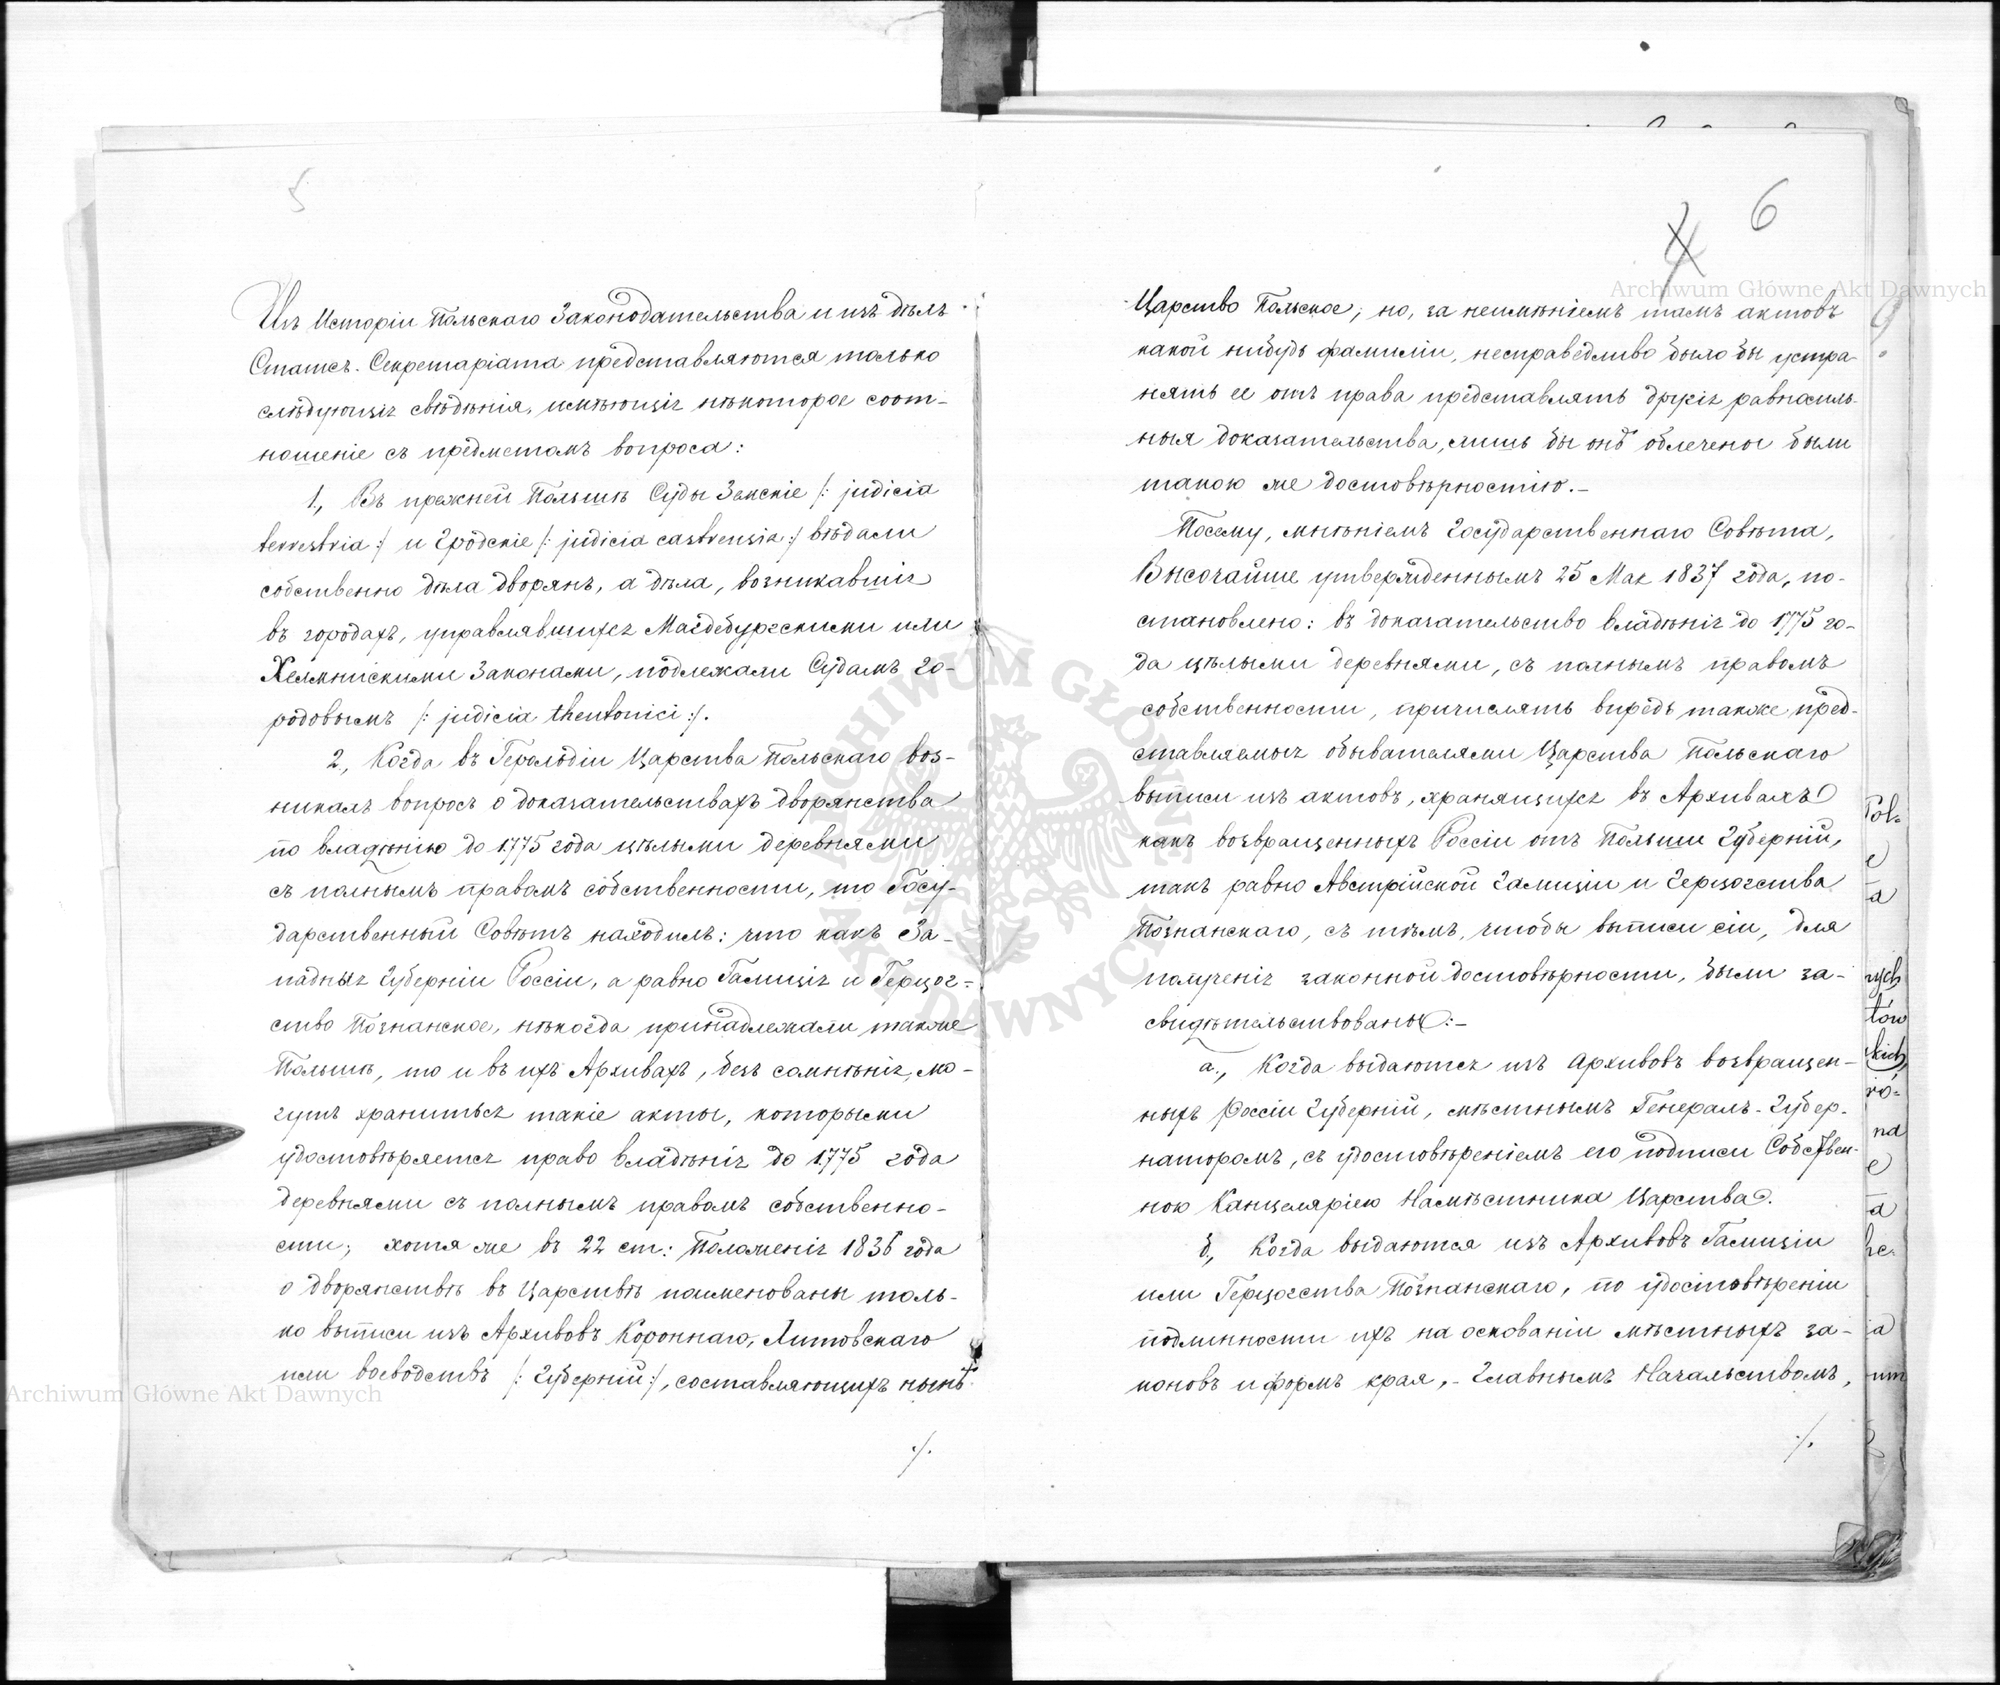 5
Изъ Исторіи Польскаго Законодательства и изъ дѣлъ
Статсъ-Секретаріата представляются только
слѣдующія свѣдѣнія, имѣющія нѣкоторое соот-
ношеніе съ предметомъ вопроса:
1., Въ прежней Польшѣ Суды Земскіе /: judicia
terrestria :/ и Гродскіе /: judicia castrensia :/ вѣдали
собственно дѣла дворянъ, а дѣла, возникавшія
въ городахъ, управлявшихся Магдебургскими или
Хелмнискими Законами, подлежали Судамъ го-
родовымъ /: judicia theutonici :/.
2., Когда въ Герольдіи Царства Польскаго воз-
никалъ вопросъ о доказательствахъ дворянства
по владѣнію до 1775 года цѣлыми деревнями
съ полнымъ правомъ собственности, то Госу-
дарственный Совѣтъ находилъ: что какъ За-
падныя Губерніи Россіи, а равно Галиція и Герцог-
ство Познанское, нѣкогда принадлежали также
Польшѣ, то и въ ихъ Архивахъ, безъ сомнѣнія, мо-
гутъ храниться такіе акты, которыми
удостовѣряется право владѣнія до 1775 года
деревнями съ полнымъ правомъ собственно-
сти; хотя же въ 22 ст: Положенія 1836 года
о дворянствѣ въ Царствѣ поименованы толь-
ко выписи изъ Архивовъ Короннаго, Литовскаго
или воеводствъ /: Губерній :/, составляющихъ нынѣ
./.
4
6
Царство Польское; но, за неимѣніемъ тамъ актовъ
какой нибудь фамиліи, несправедливо было бы устра-
нять ее отъ права представлять другія равносиль-
ныя доказательства, лишь бы онѣ облечены были
такою же достовѣрностію.-
Посему, мнѣніемъ Государственнаго Совѣта,
Высочайше утвержденнымъ 25 Мая 1837 года, по-
становлено: въ доказательство владѣнія до 1775 го-
да цѣлыми деревнями, съ полнымъ правомъ
собственности, причислять впредь также пред-
ставляемыя обывателями Царства Польскаго
выписи изъ актовъ, хранящихся въ Архивахъ
какъ возвращенныхъ Россіи отъ Польши Губерній,
такъ равно Австрійской Галиціи и Герцогства
Познанскаго, съ тѣмъ, чтобы выписи сіи, для
полученія законной достовѣрности, были за-
свидѣтельствованы:-
а., Когда выдаются изъ Архивовъ возвращен-
ныхъ Россіи Губерній, мѣстнымъ Генералъ-Губер-
наторомъ, съ удостовѣреніемъ его подписи Собствен-
ною Канцеляріею Намѣстника Царства.
б., Когда выдаются изъ Архивовъ Галиціи
или Герцогства Познанскаго, по удостовѣреніи
подлинности ихъ на основаніи мѣстныхъ за-
коновъ и формъ края,- Главнымъ Начальствомъ,
./.
Archiwum Główne Akt Dawnych
Archiwum Główne Akt Dawnych
ARCHIWUM GŁÓWNE AKT DAWNYCH